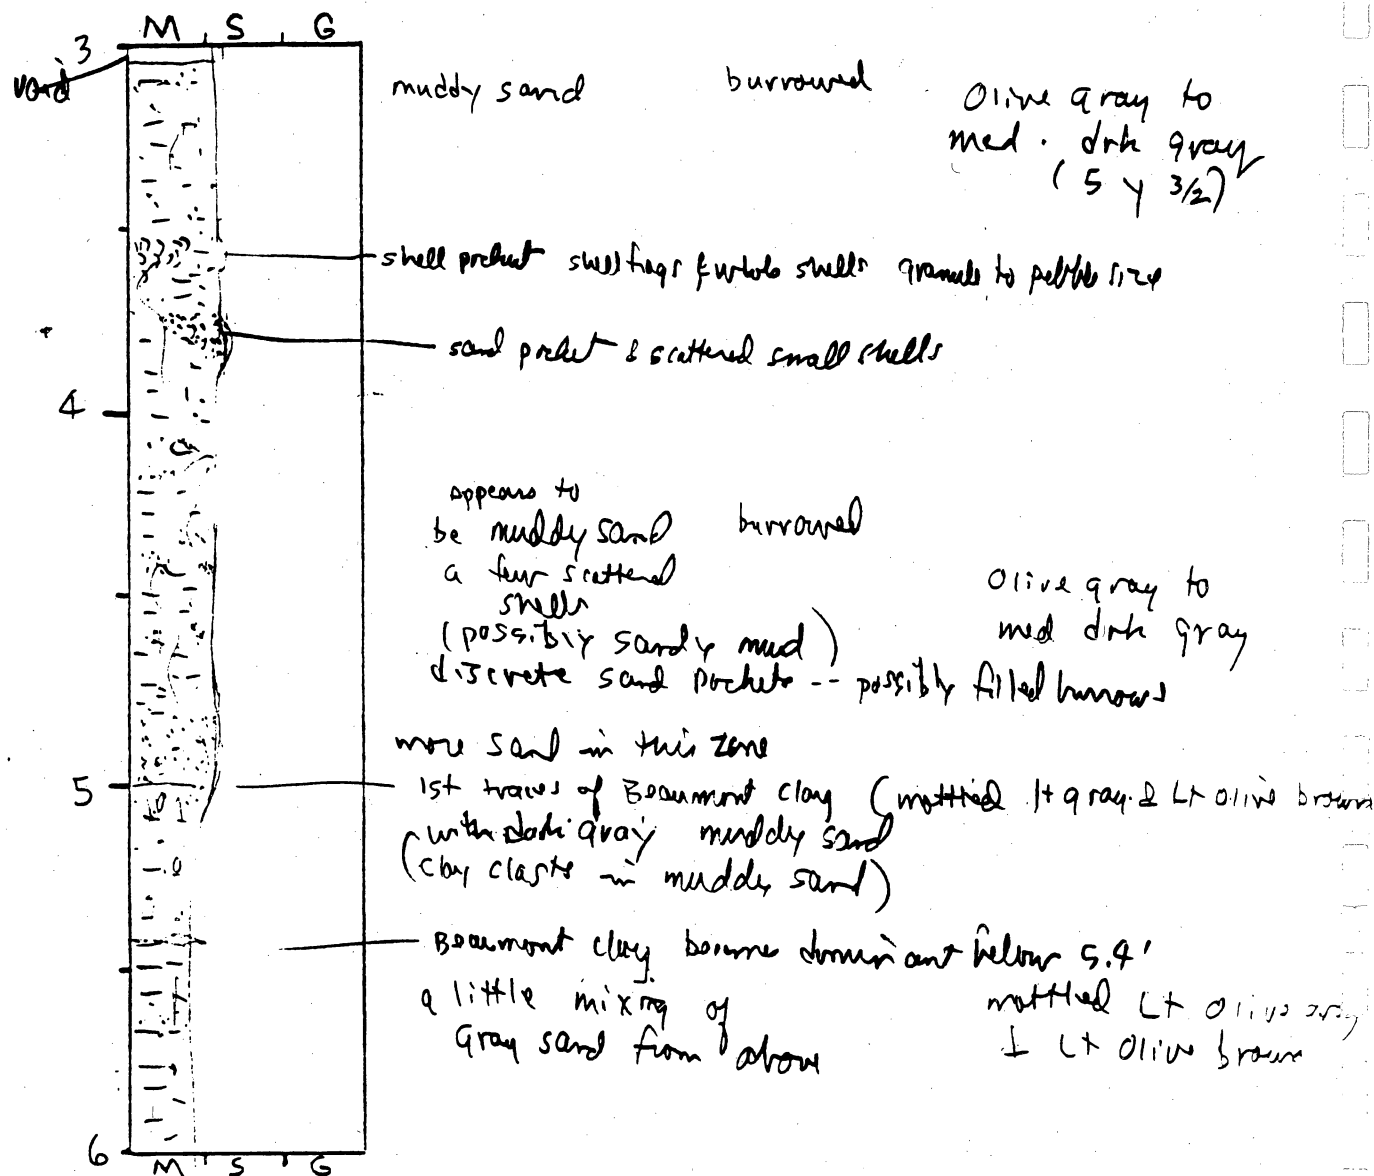 M S G
3
void
muddy sand burrowed
Olive gray to
med. drk gray
(5 y 3/2)
shell pocket shell frags & whole shells granule to pebble size
sand pocket & scattered small shells
4
appears to
be muddy sand burrowed
a few scattered
shells
(possibly sandy mud)
Olive gray to
med drk gray
discrete sand pockets -- possibly filled burrows
more sand in this zone
5
1st traces of Beaumont clay (mottled lt gray & Lt olive brown
with dark gray muddy sand
(clay clasts in muddy sand)
Beaumont clay becomes dominant below 5.4'
a little mixing of
gray sand from above
mottled Lt olive gray
& Lt olive brown
6
M S G